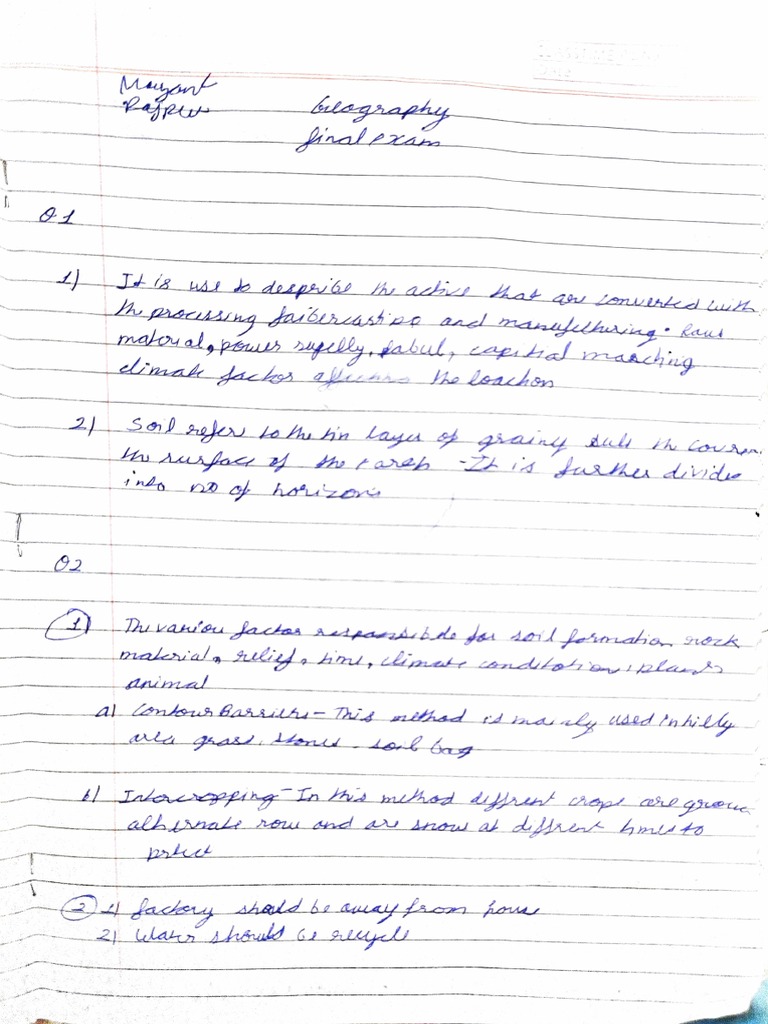 Mayant
Rajput
Geography
final exam
Q1
1) It is use to despribe the active that are converted with
the processing and manufethuring. Raw
material, power supelly, labul, capitial maaching
climate factor the loachon
2) Soil refer to the tin layer of grainy the couren
the surface of the earth - It is further divide
into no of horizons
Q2
1) The variou factor responsibile for soil formation rock
material, relief, time, climate conditation, plants
animal
a) Contour Barriers - This method is mainly used in hilly
area grass, stones - soil bag
b) Intercropping - In this method diffrent crops are
alternate row and are snow at diffrent times to
prtect
2) 1) factory should be away from house
2) Water should be recycle